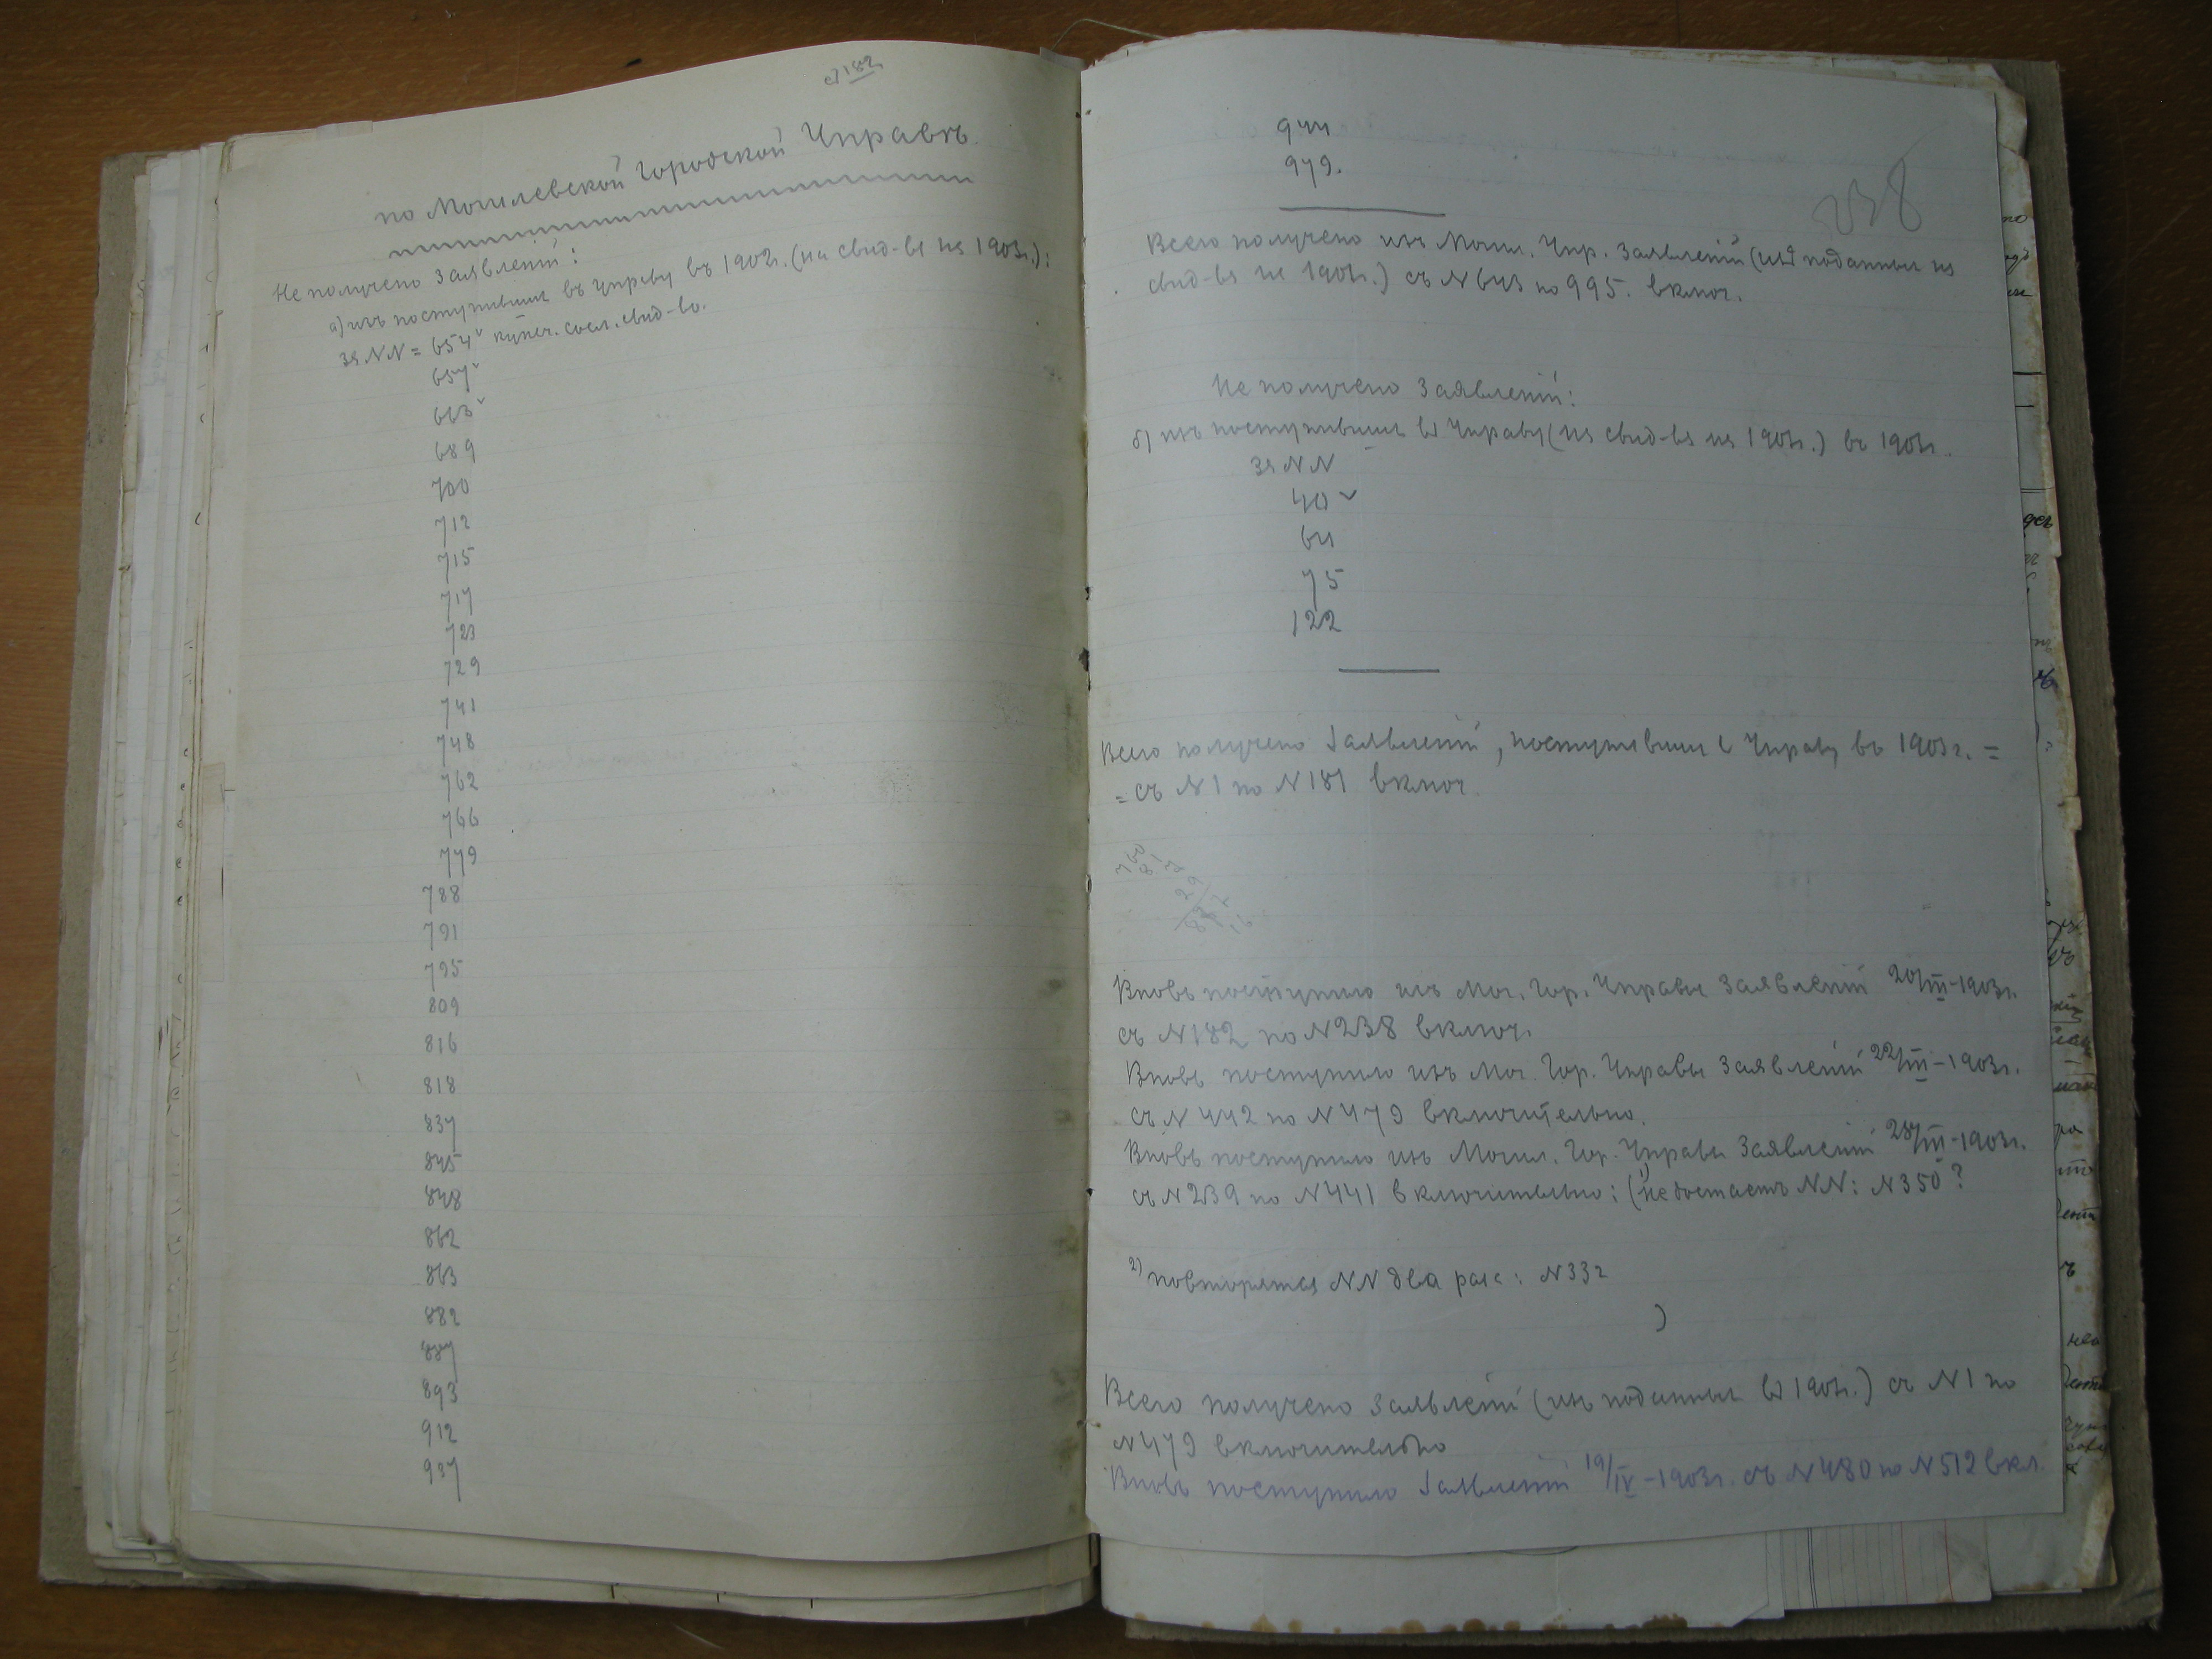 с 182
по Могилевской Городской Управѣ.
Не получено Заявленій:
а) изъ поступившихъ въ Управу въ 1902г. (на свид-ва на 1903г.):
за NN = 654 купеч. сосл. свид-во.
657
663
689
700
712
715
717
723
729
741
748
762
766
779
788
791
795
809
816
818
837
845
848
862
863
882
887
893
912
937
944
979.
238
Всего получено изъ Могил. Упр. Заявленій (изъ поданныхъ на
свид-ва на 1903г.) съ N 643 по 995. включ.
Не получено Заявленій:
б) изъ поступившихъ въ Управу (на свид-ва на 1903г.) въ 1903г.
за NN
40
64
75
122
Всего получено Заявленій, поступившихъ въ Управу въ 1903г. =
= съ N 1 по N 181 включ.
Вновь поступило изъ Мог. Гор. Управы Заявленій 20/III-1903г.
съ N 182 по N 238 включ.
Вновь поступило изъ Мог. Гор. Управы Заявленій 22/III-1903г.
съ N 442 по N 479 включительно.
Вновь поступило изъ Могил. Гор. Управы Заявленій 28/III-1903г.
съ N 239 по N 441 включительно: (1) недостаетъ NN: N 350?
2) повторяется NN два раза: N 332
)
Всего получено Заявленій (изъ поданныхъ въ 1903г.) съ N 1 по
N 479 включительно
Вновь поступило Заявленій 19/IV-1903г. съ N 480 по N 512 вкл.